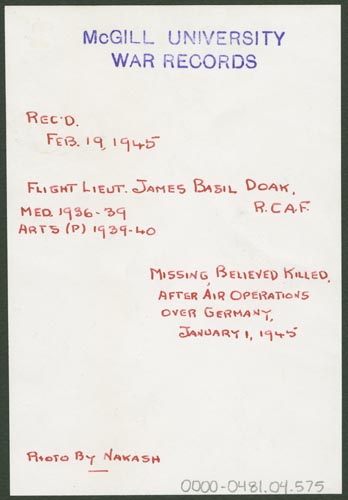 McGILL UNIVERSITY
WAR RECORDS
REC'D.
FEB. 19, 1945
FLIGHT LIEUT. JAMES BASIL DOAK,
R.C.A.F.
MED. 1936-39
ARTS (P) 1939-40
MISSING BELIEVED KILLED,
AFTER AIR OPERATIONS
OVER GERMANY,
JANUARY 1, 1945
PHOTO BY NAKASH
0000-0481.04.575